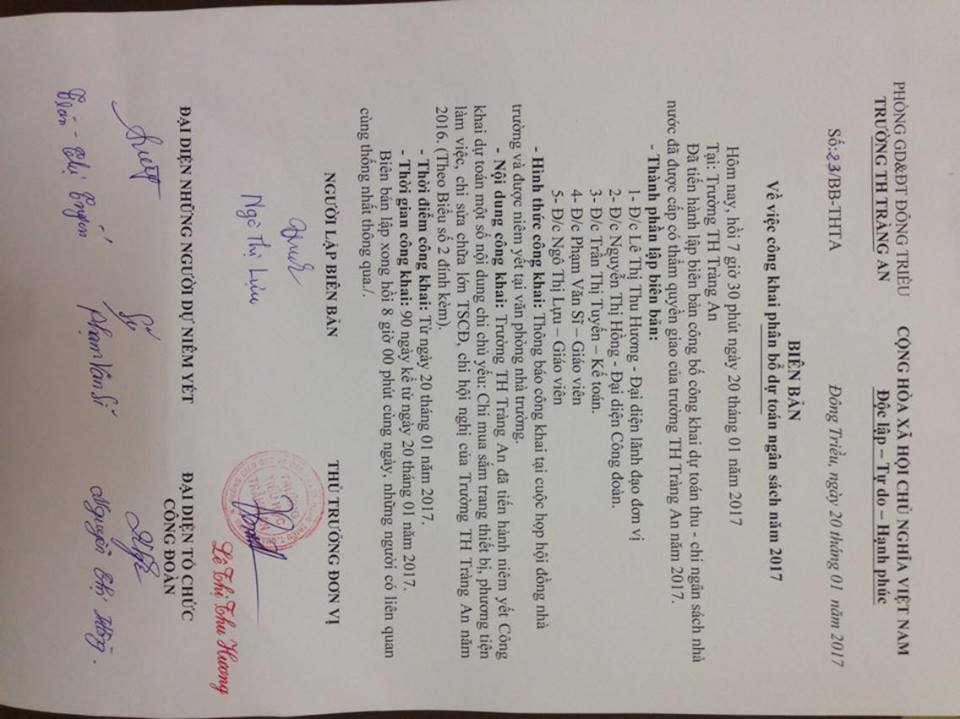 PHÒNG GD&ĐT ĐÔNG TRIỀU
TRƯỜNG TH TRÀNG AN
Số:23/BB-THTA
CỘNG HÒA XÃ HỘI CHỦ NGHĨA VIỆT NAM
Độc lập – Tự do – Hạnh phúc
Đông Triều, ngày 20 tháng 01 năm 2017
BIÊN BẢN
Về việc công khai phân bổ dự toán ngân sách năm 2017
Hôm nay, hồi 7 giờ 30 phút ngày 20 tháng 01 năm 2017
Tại: Trường TH Tràng An
Đã tiến hành lập biên bản công bố công khai dự toán thu - chi ngân sách nhà
nước đã được cấp có thẩm quyền giao của trường TH Tràng An năm 2017.
- Thành phần lập biên bản:
1- Đ/c Lê Thị Thu Hương - Đại diện lãnh đạo đơn vị
2- Đ/c Nguyễn Thị Hồng - Đại diện Công đoàn.
3- Đ/c Trần Thị Tuyến – Kế toán.
4- Đ/c Phạm Văn Sĩ – Giáo viên
5- Đ/c Ngô Thị Lựu – Giáo viên
- Hình thức công khai: Thông báo công khai tại cuộc họp hội đồng nhà
trường và được niêm yết tại văn phòng nhà trường.
- Nội dung công khai: Trường TH Tràng An đã tiến hành niêm yết Công
khai dự toán một số nội dung chi chủ yếu: Chi mua sắm trang thiết bị, phương tiện
làm việc, chi sửa chữa lớn TSCĐ, chi hội nghị của Trường TH Tràng An năm
2016. (Theo Biểu số 2 đính kèm).
- Thời điểm công khai: Từ ngày 20 tháng 01 năm 2017.
- Thời gian công khai: 90 ngày kể từ ngày 20 tháng 01 năm 2017.
Biên bản lập xong hồi 8 giờ 00 phút cùng ngày, những người có liên quan
cùng thống nhất thông qua./.
NGƯỜI LẬP BIÊN BẢN
Ngô Thị Lựu
THỦ TRƯỞNG ĐƠN VỊ
Lê Thị Thu Hương
ĐẠI DIỆN NHỮNG NGƯỜI DỰ NIÊM YẾT
Trần Thị Tuyến
Phạm Văn Sĩ
ĐẠI DIỆN TỔ CHỨC
CÔNG ĐOÀN
Nguyễn Thị Hồng.